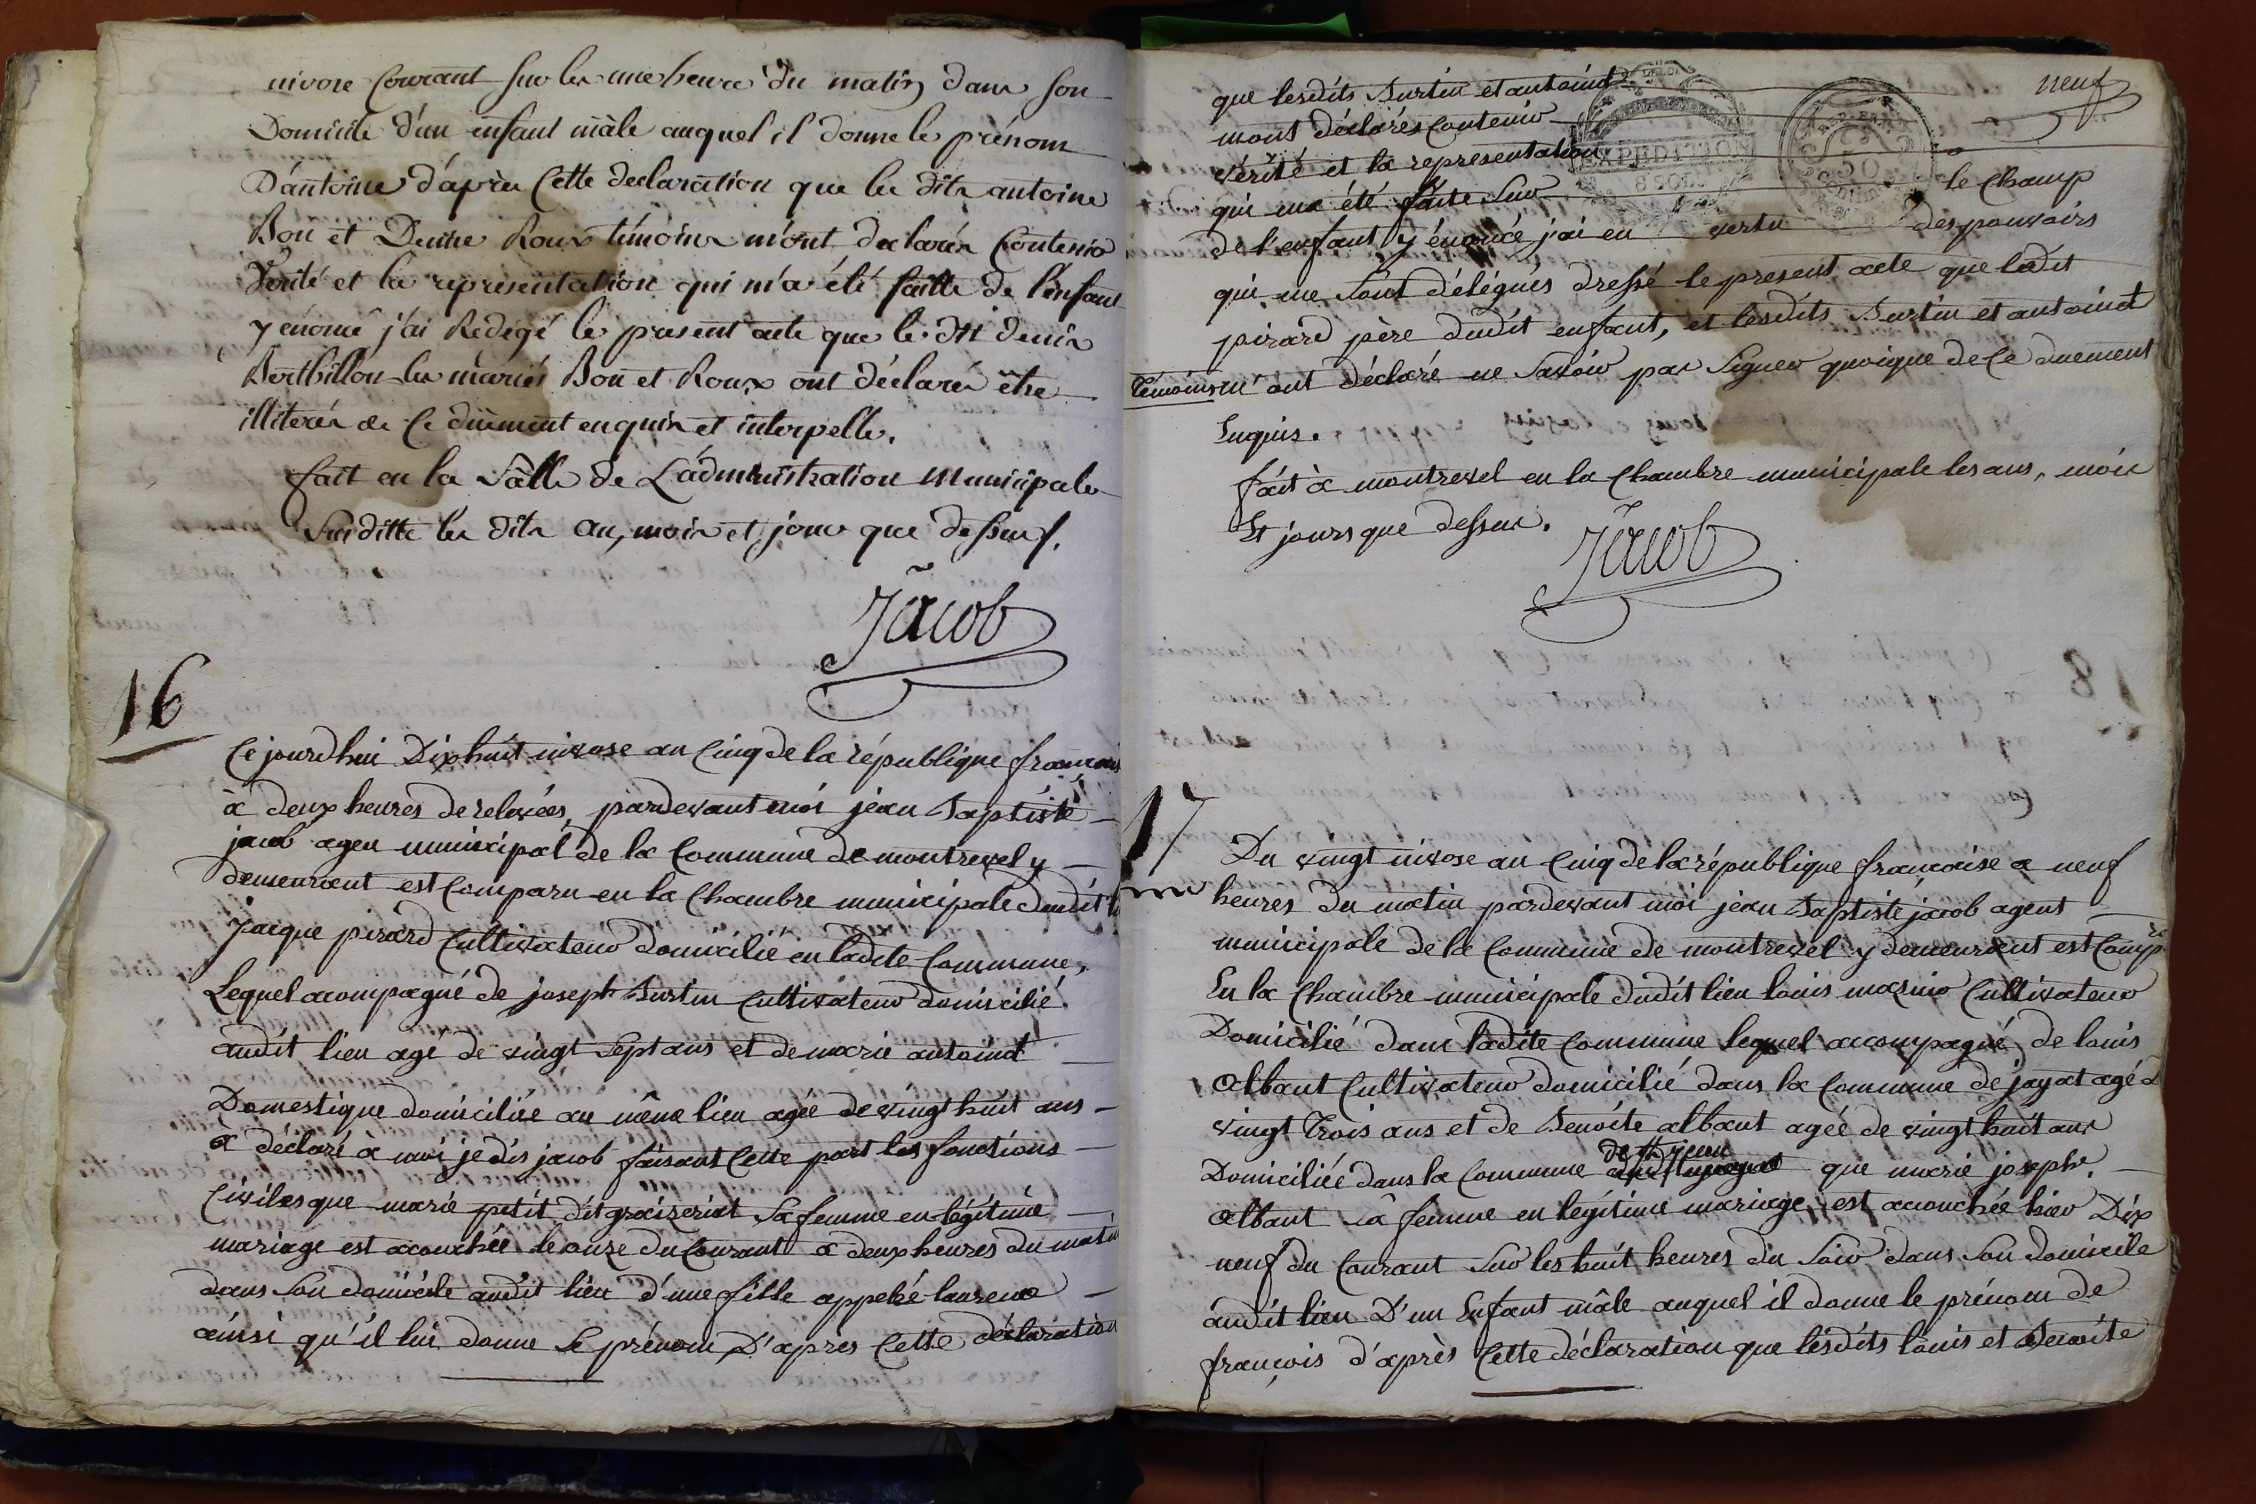 nivose Courant sur les une heure du matin dans son
Domicile d'un enfant mâle auquel il donne le prénom
D'antoine d'après Cette declaration que les dits antoine
Bon et Denise Roux témoins m'ont declarés Contenir
Verité et la représentation qui m'a été faitte de l'enfant
y énoncé j'ai Redigé le present acte que le dit denis
Berthillon les mariés Bon et Roux ont déclarés être
illiterés de Ce duement enquis et interpellé.
fait en la Salle de L'administration Municipale
Susditte les dits an, mois et jour que dessus.
Jacob
16
Ce jourd'hui Dixhuit nivose an Cinq de la république française
à deux heures de relevées, pardevant moi jean Baptiste
jacob agen municipal de la Commune de montrevel y
demeurant est Comparu en la Chambre municipale dudit
jacque pirard Cultivateur domicilié en ladite Commune,
Lequel acompagné de joseph Burtin Cultivateur domicilié
audit lieu agé de vingt sept ans et de marie antoinet
Domestique domiciliée au même lieu agée de vingt huit ans
a déclaré à moi je dis jacob faisant Cette part les fonctions
Civiles que marie petit dit sa femme en légitime
mariage est acouchée le onze du Courant a deux heures du matin
dans son domicile audit lieu d'une fille appelée laurence
ainsi qu'il lui donne le prénom D'après Cette déclaration
neuf
que lesdits Burtin et antoinet
m'ont déclarés Contenir
vérité et la representation
EXPEDITION
50
qui ma été faite sur le Champ
de l'enfant y énoncé j'ai en vertu des pouvoirs
qui me sont délégués dressé le present acte que ledit
pirard père dudit enfant, et lesdits Burtin et antoinet
témoins m'ont déclaré ne savoir pas signer quoique de Ce duement
Enquis.
fait à montrevel en la Chambre municipale les ans, mois
Et jours que dessus.
Jacob
17
Du vingt nivose an Cinq de la république française a neuf
heures du matin pardevant moi jean Baptiste jacob agent
municipale de la Commune de montrevel y demeurant est Comp
En la Chambre municipale dudit lieu louis Cultivateur
Domicilié dans ladite Commune lequel accompagné de louis
albant Cultivateur domicilié dans la Commune de jayat agé de
vingt trois ans et de Benoite albant agée de vingt huit ans
Domiciliée dans la Commune que marie josephe
albant sa femme en légitime mariage est acouchée hier Dix
neuf du Courant sur les huit heures du soir dans son domicile
audit lieu D'un Enfant mâle auquel il donne le prénom de
françois d'après Cette déclaration que lesdits louis et Benoite